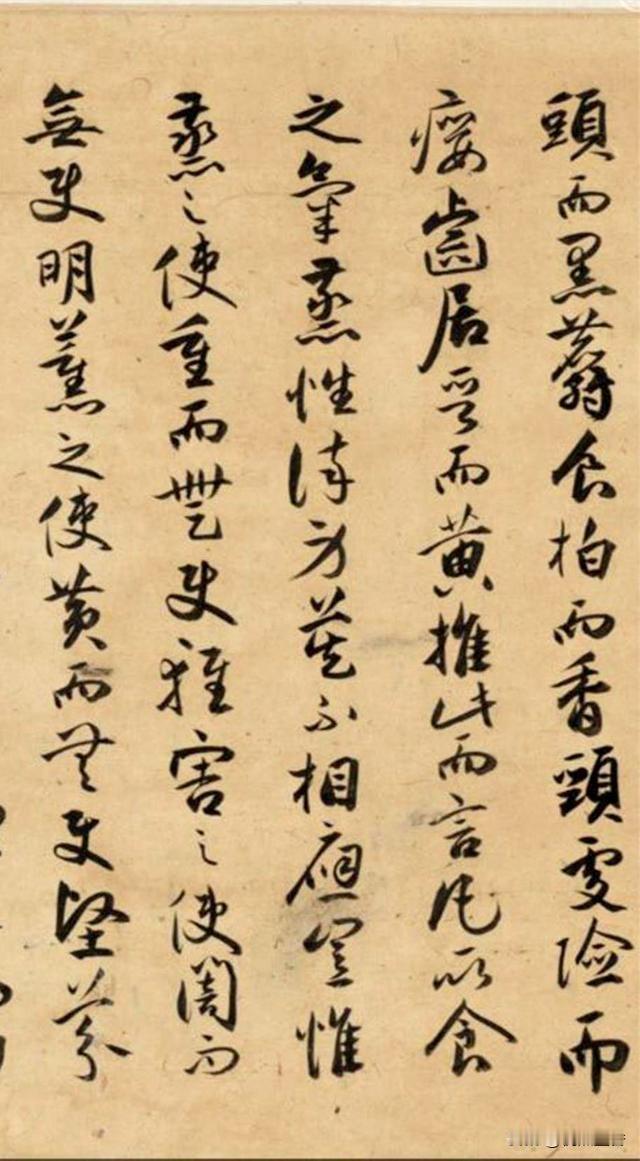 頭而黑麝食柏而香頸處險而
癭齒居晉而黃推此而言凡所食
之氣蒸性染身莫不相應豈惟
蒸之使重而無使輕害之使闇而
無使明薰之使黃而無使堅芬